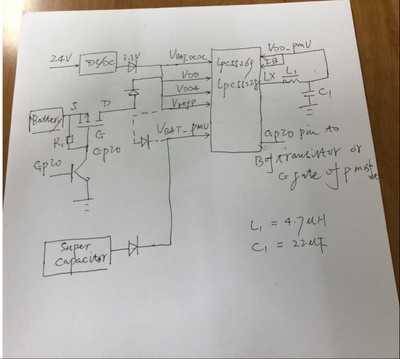 24V
DC/DC
3.3V
VBAT_DCDC
VDD
VDDA
Vrefp
VBAT_PMU
LPC55S69
LPC55S28
VDD_PMU
FB
LX
L1
C1
Battery
S
D
G
R1
Gp20
Gp20
Gp20 pin to
B of transistor or
G gate of pmos
L1 = 4.7uH
C1 = 22uF
Super
Capacitor